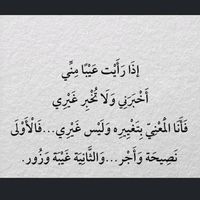 إِذَا رَأَيْت عَيْبًا مِنِّي
أَخْبَرَنِي وَلَا تُخْبِر غَيْرِي
فَأَنَا الْمَعْنِيّ بِتَغْيِيرِه وَلَيْس غَيْرِي...فَالْأَوْلَى
نَصِيحَة وَأَجْر...وَالثَّانِيَة غَيْبَة وَزُور.